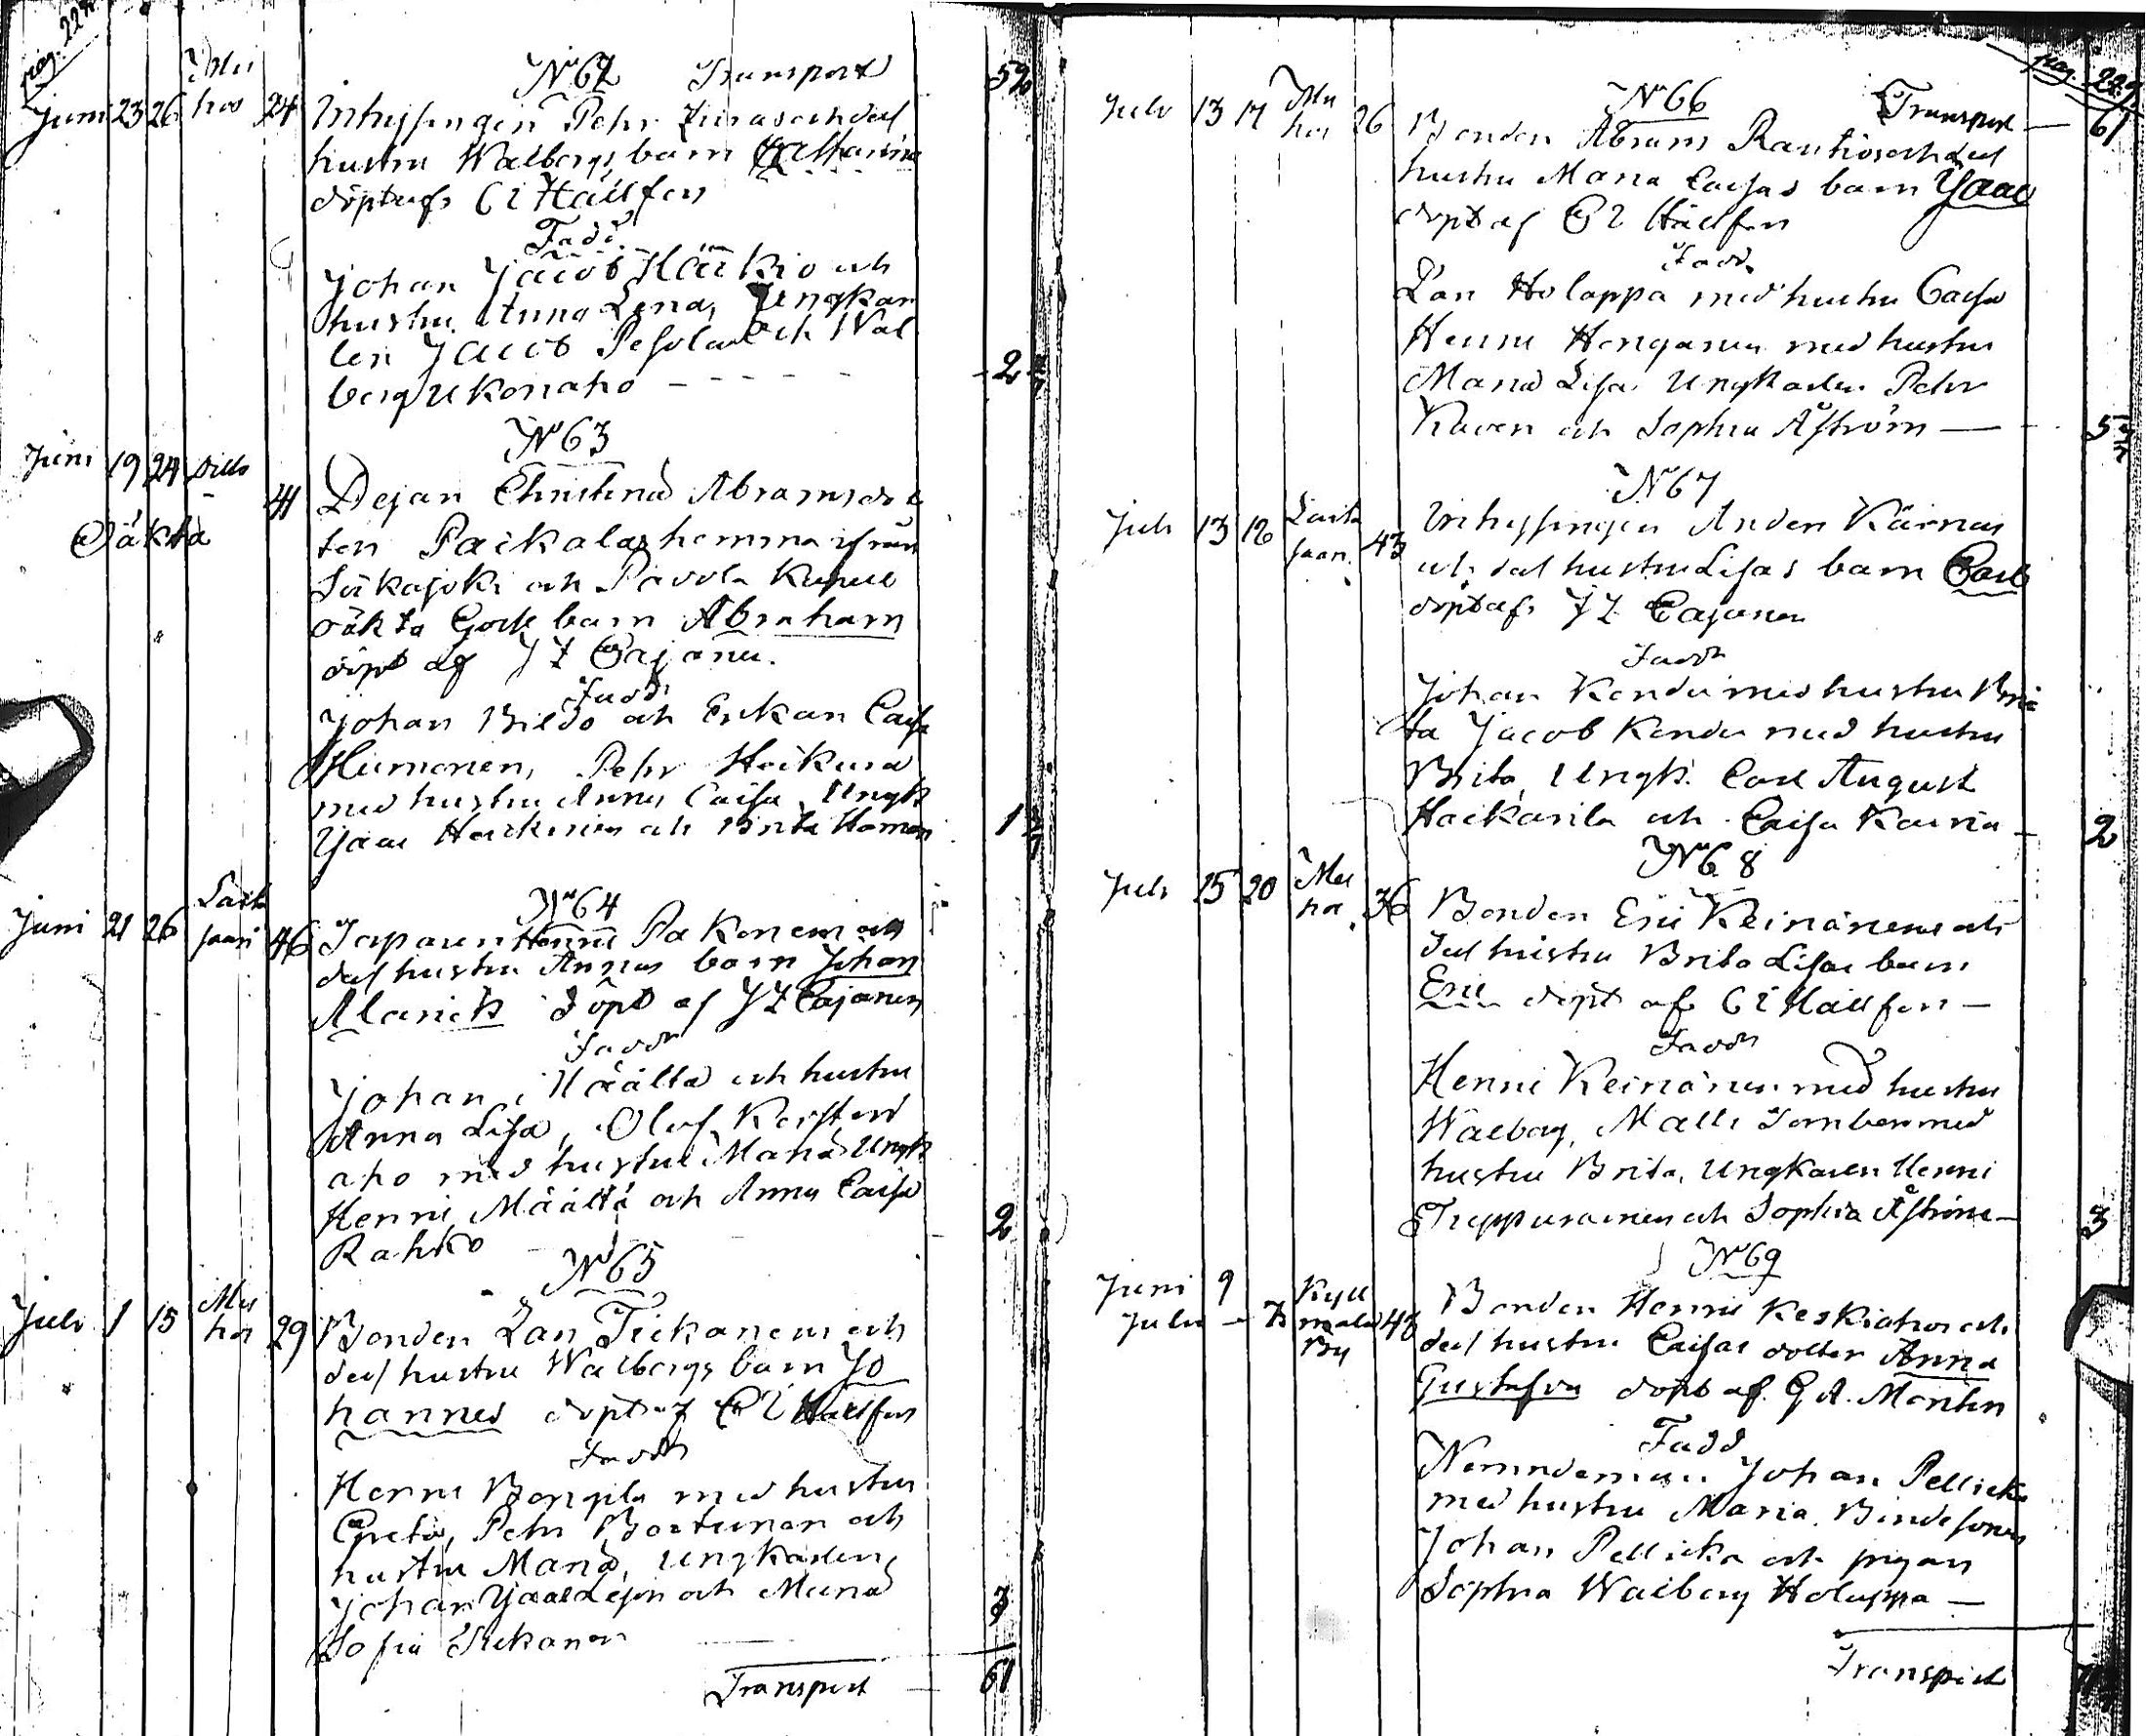 pag. 228
N° 62 Transport 59
Juni 23 26 Mu
hos 24 Inhysingen Pehr Juras och dess
hustru Walborgs barn Catharina
döpt af C E Hällfors
Fadd.
Johan Jacob Härkiö och
hustru Anna Lena, Ungkar
len Jacob Pesola och Wal
borg Ukonaho - - - - - 2
N° 63
Juni 19 24 Dito
41 Dejan Christina Abramsdot
ter Paikalas hemma ifrån
Siikajoki och Pavola Kapell
oäkta Gosse barn Abraham
döpt af J Z Cajanus.
Oäkta
Fadd
Johan Bildo och Enkan Caisa
Hurmonen, Pehr Heikura
med hustru Anna Caisa, Ungk
Isaac Heickinen och Brita Homan 1
N° 64
Juni 21 26 Laita
saari 46 Torparen Henric Pakonem och
dess hustru Annas barn Johan
Alarick döpt af J Z Cajanus
Fadd
Johan Määttä och hustru
Anna Lisa, Olof
aho med hustru Maria Ungk
Henric Määttä och Anna Caisa
Rahko 2
N° 65
Juli 1 15 Mu
hos 29 Bonden Lars Tickanens och
dess hustru Walborgs barn Jo
hannes döpt af C E Hällfors
Fadd
Henric Bongila med hustru
Greta, Pehr Bovtunen och
hustru Maria, Ungkarlen
Johan Isaac Leson och Maria
Sofia Tickanen 3
Transport 61
pag. 229
N° 66 Transport 61
Juli 13 17 Mu
hos 26 Bonden Abram Rautios och dess
hustru Maria Caisas barn Isaac
döpt af C E Hällfors
Fadd.
Lars Holappa med hustru Caisa
Henric Honganen med hustru
Maria Lisa Ungkarlen Pehr
Kuven och Sophia Åström 5
N° 67
Juli 13 18 Laita
saari. 43 Inhysingen Anders Kärnas
och dess hustru Lisas barn Carl
döpt af J Z Cajanus
Fadd
Johan Kandu med hustru Bri
ta Jacob Kandu med hustru
Brita, Ungk. Carl August
Haikarila och Caisa Karina 2
N° 68
Juli 15 20 Mu
hos 36 Bonden Eric Keinänens och
dess hustru Brita Lisas barn
Eric döpt af C E Hällfors
Fadd
Henric Keinänen med hustru
Walborg, Matts Tornberg med
hustru Brita, Ungkarlen Henric
Treppurainen och Sophia Åström 3
N° 69
Juni 9
Julii - 7 Kyll
mälä
By 48 Bonden Henric Keskiahos och
dess hustru Caisas dotter Anna
Gustafva döpt af G A. Montin
Fadd
Nämndeman Johan Pellicka
med hustru Maria. Bondesonen
Johan Pellicka och pigan
Sophia Walborg Holappa
Transport